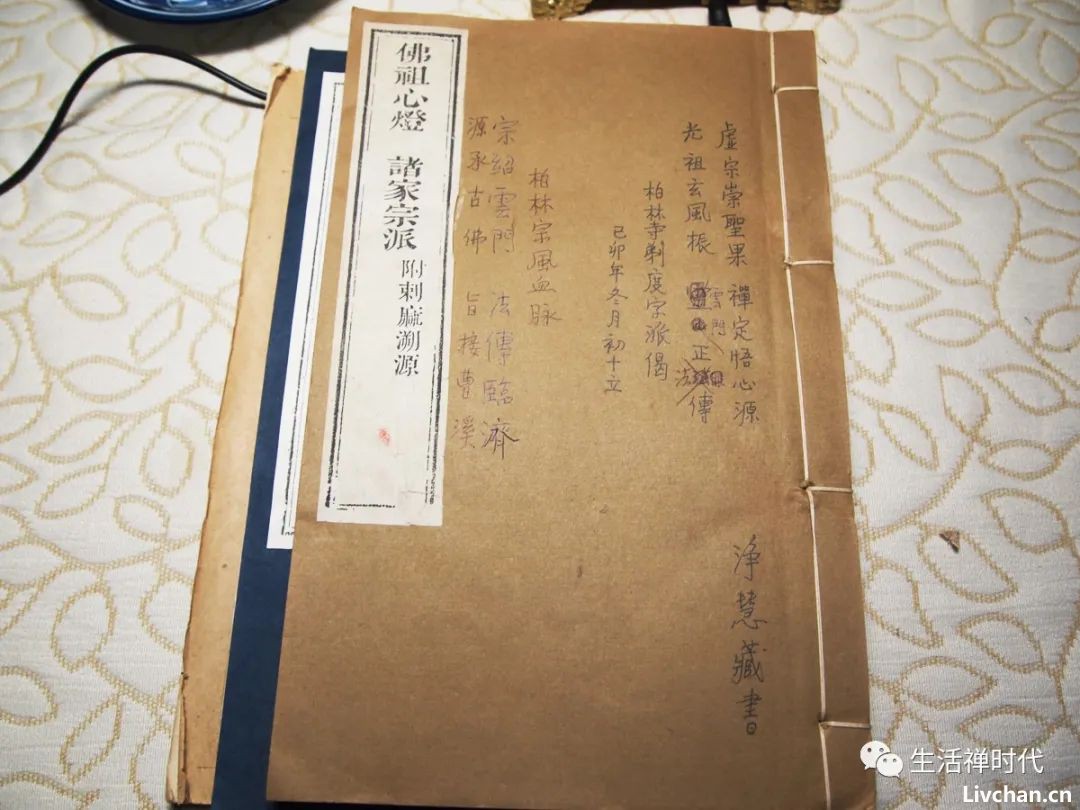 虛宗崇聖果 禪定悟心源
光祖玄風振 雲門正法傳
柏林寺剃度宗派偈
己卯年冬月初十立
柏林宗風血脉
宗紹雲門 法傳臨濟
源承古佛 旨接曹溪
佛祖心燈 諸家宗派 附刺麻溯源
浄慧藏書
生活禅时代
Livchan.cn